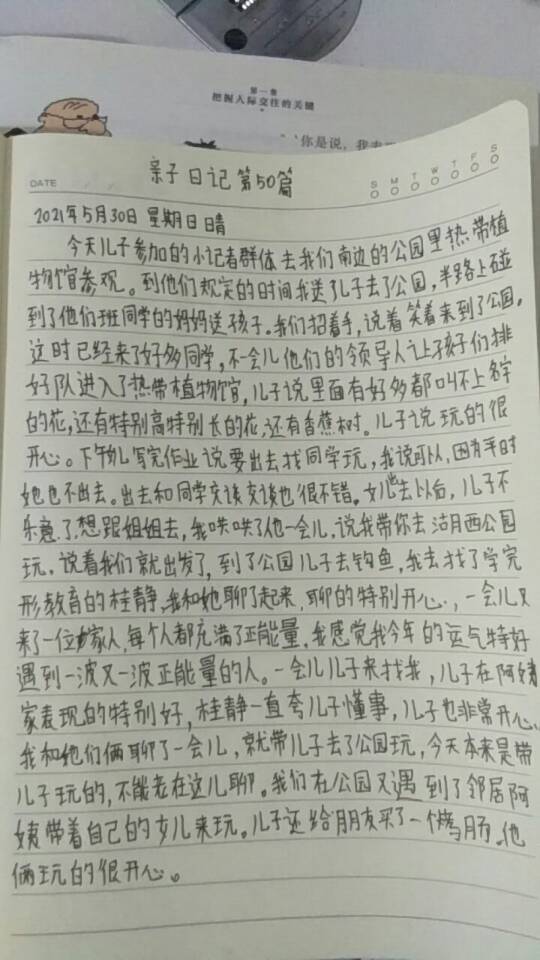 第一章
把握人际交往的关键
你是说，我去
亲子日记第50篇
DATE
S M T W T F S
2021年5月30日 星期日 晴
今天儿子参加的小记者群体去我们南边的公园里热带植
物馆参观。到他们规定的时间我送了儿子去了公园，半路上碰
到了他们班同学的妈妈送孩子。我们招着手，说着笑着来到了公园。
这时已经来了好多同学，不一会儿他们的领导人让孩子们排
好队进入了热带植物馆，儿子说里面有好多都叫不上名字
的花，还有特别高特别长的花，还有香蕉树。儿子说玩的很
开心。下午幼儿写完作业说要出去找同学玩，我说可以，因为平时
她也不出去。出去和同学交谈交谈也很不错。女儿出去以后，儿子不
乐意了，想跟姐姐去，我哄哄了他一会儿，说我带你去沽月西公园
玩。说着我们就出发了，到了公园儿子去钓鱼，我去找了学完
形教育的桂静，我和她聊了起来，聊的特别开心，一会儿又
来了一位家人，每个人都充满了正能量，我感觉我今年的运气特好
遇到一波又一波正能量的人。一会儿儿子来找我，儿子在阿姨
家表现的特别好，桂静一直夸儿子懂事，儿子也非常开心。
我和她们俩聊了一会儿，就带儿子去了公园玩，今天本来是带
儿子玩的，不能老在这儿聊。我们在公园又遇到了邻居阿
姨带着自己的女儿来玩。儿子还给朋友买了一个烤肠。他
俩玩的很开心。